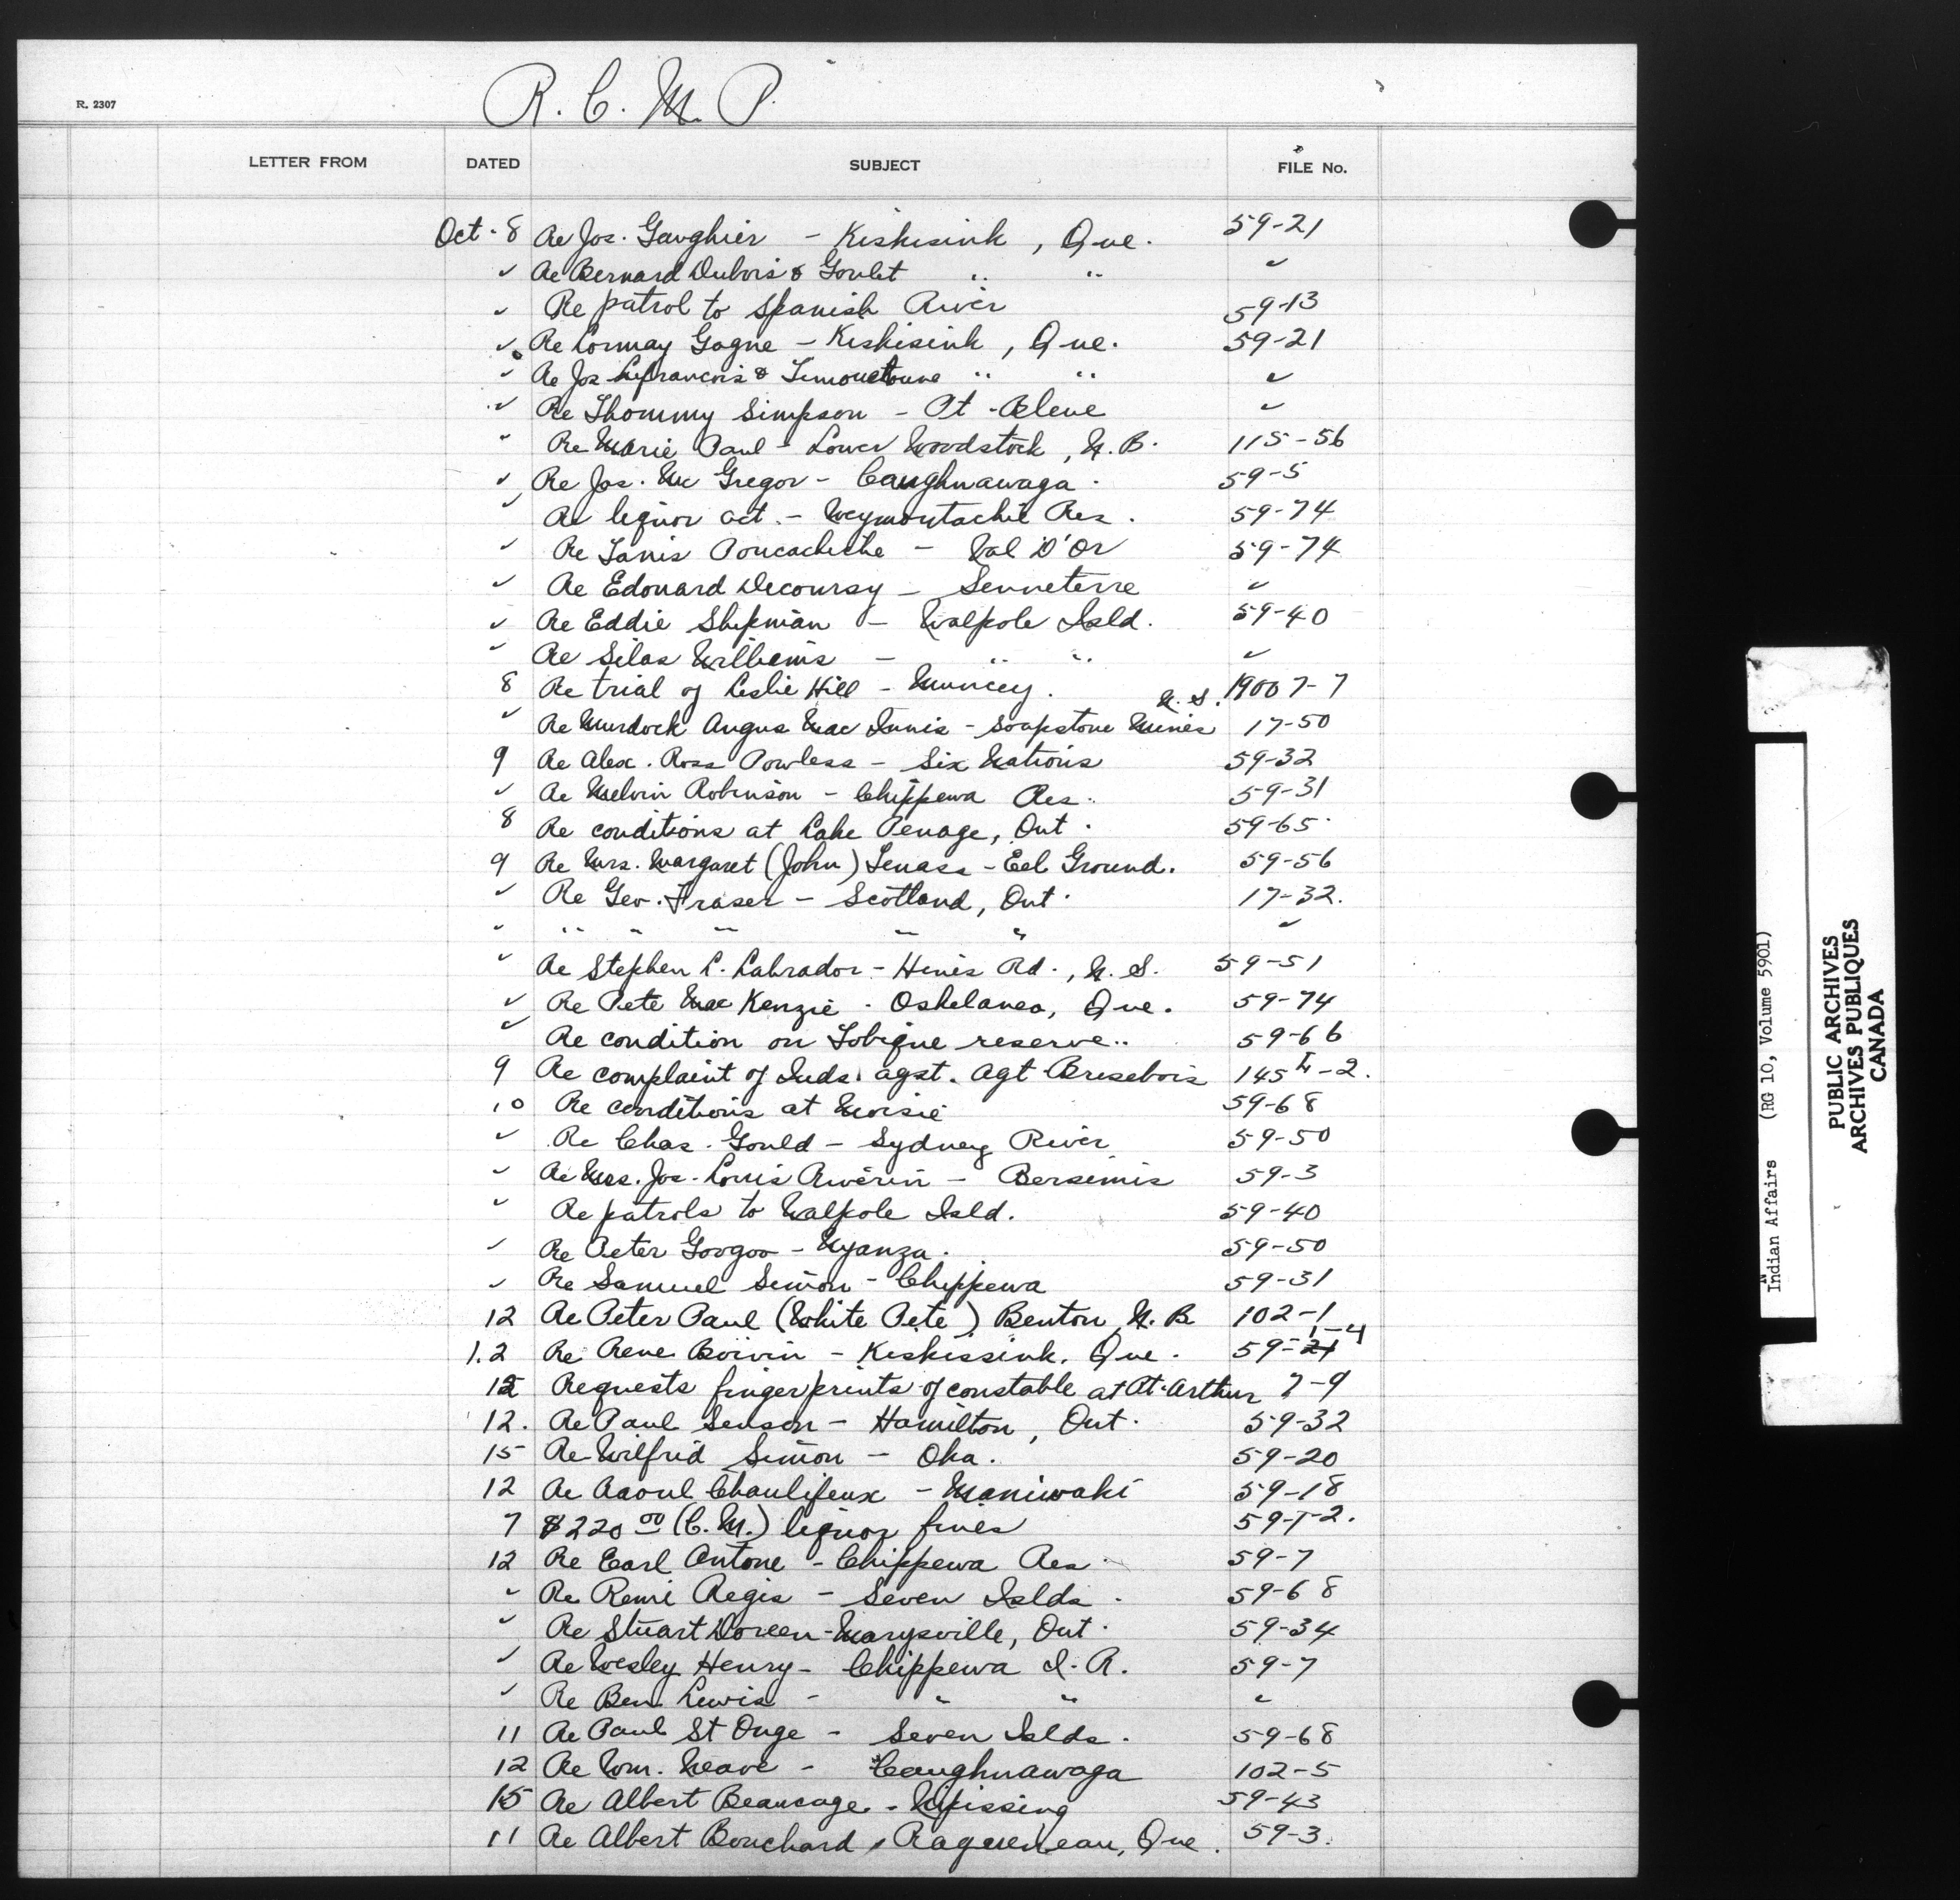 R. 2307
R. C. M. P.
LETTER FROM DATED SUBJECT FILE No.
Oct. 8 Re Jos. Gaughier - Kiskisink, Que. 59-21
✓ Re Bernard Dubois & Goulet " " ✓
✓ Re patrol to Spanish River 59-13
✓ Re Gagne - Kiskisink, Que. 59-21
✓ Re Jos Lefrancois & " " ✓
✓ Re Thommy Simpson - Pt - Bleue ✓
" Re Marie Paul - Lower Woodstock, N.B. 115-56
✓ Re Jos. Mc Gregor - Caughnawaga. 59-5
✓ Re liquor act. - Weymontachie Res. 59-74
✓ Re - Val D'Or 59-74
✓ Re Edouard Decoursy - Senneterre ✓
✓ Re Eddie Shipman - Walpole Isld. 59-40
✓ Re Silas Williams - " " ✓
8 Re trial of Leslie Hill - Muncey. 19007-7
✓ Re Murdock Angus Mac Innis - Soapstone Mines N.S. 17-50
9 Re Alex. Ross Powless - Six Nations 59-32
✓ Re Melvin Robinson - Chippewa Res. 59-31
8 Re conditions at Lake Penage, Ont. 59-65
9 Re Mrs. Margaret (John) Tenass - Eel Ground. 59-56
✓ Re Geo. Fraser - Scotland, Ont. 17-32.
✓ " " " " " ✓
✓ Re Stephen L. Labrador - Hines Rd., N.S. 59-51
✓ Re Pete Mac Kenzie - Oskelaneo, Que. 59-74
✓ Re condition on Tobique reserve.. 59-66
9 Re complaint of Inds. agst. Agt Brisebois 145-2.
10 Re conditions at Moisie 59-68
✓ Re Chas. Gould - Sydney River 59-50
✓ Re Mrs. Jos. Louis Riverin - Bersimis 59-3
✓ Re patrols to Walpole Isld. 59-40
✓ Re Peter Googoo - Nyanza. 59-50
✓ Re Samuel Simon - Chippewa 59-31
12 Re Peter Paul (White Pete) Benton, N.B 102-1
12 Re Rene Boivin - Kiskissink, Que. 59-21 1-4
12 Requests fingerprints of constable at Pt. Arthur 7-9
12. Re Paul Senson - Hamilton, Ont. 59-32
15 Re Wilfrid Simon - Oka. 59-20
12 Re Raoul Chaulifeux - Maniwaki 59-18
7 $220 00 (C.M.) liquor fines 59-T-2.
12 Re Earl Antone - Chippewa Res. 59-7
✓ Re Remi Regis - Seven Islds. 59-68
✓ Re Stuart Doreen - Marysville, Ont. 59-34
✓ Re Wesley Henry - Chippewa I.R. 59-7
✓ Re Ben Lewis - " " ✓
11 Re Paul St Onge - Seven Islds. 59-68
12 Re Wm. Neave - Caughnawaga 102-5
15 Re Albert Beaucage - Nipissing 59-43
11 Re Albert Bouchard, Ragueneau, Que. 59-3.
Indian Affairs (RG 10, Volume 5901)
PUBLIC ARCHIVES
ARCHIVES PUBLIQUES
CANADA